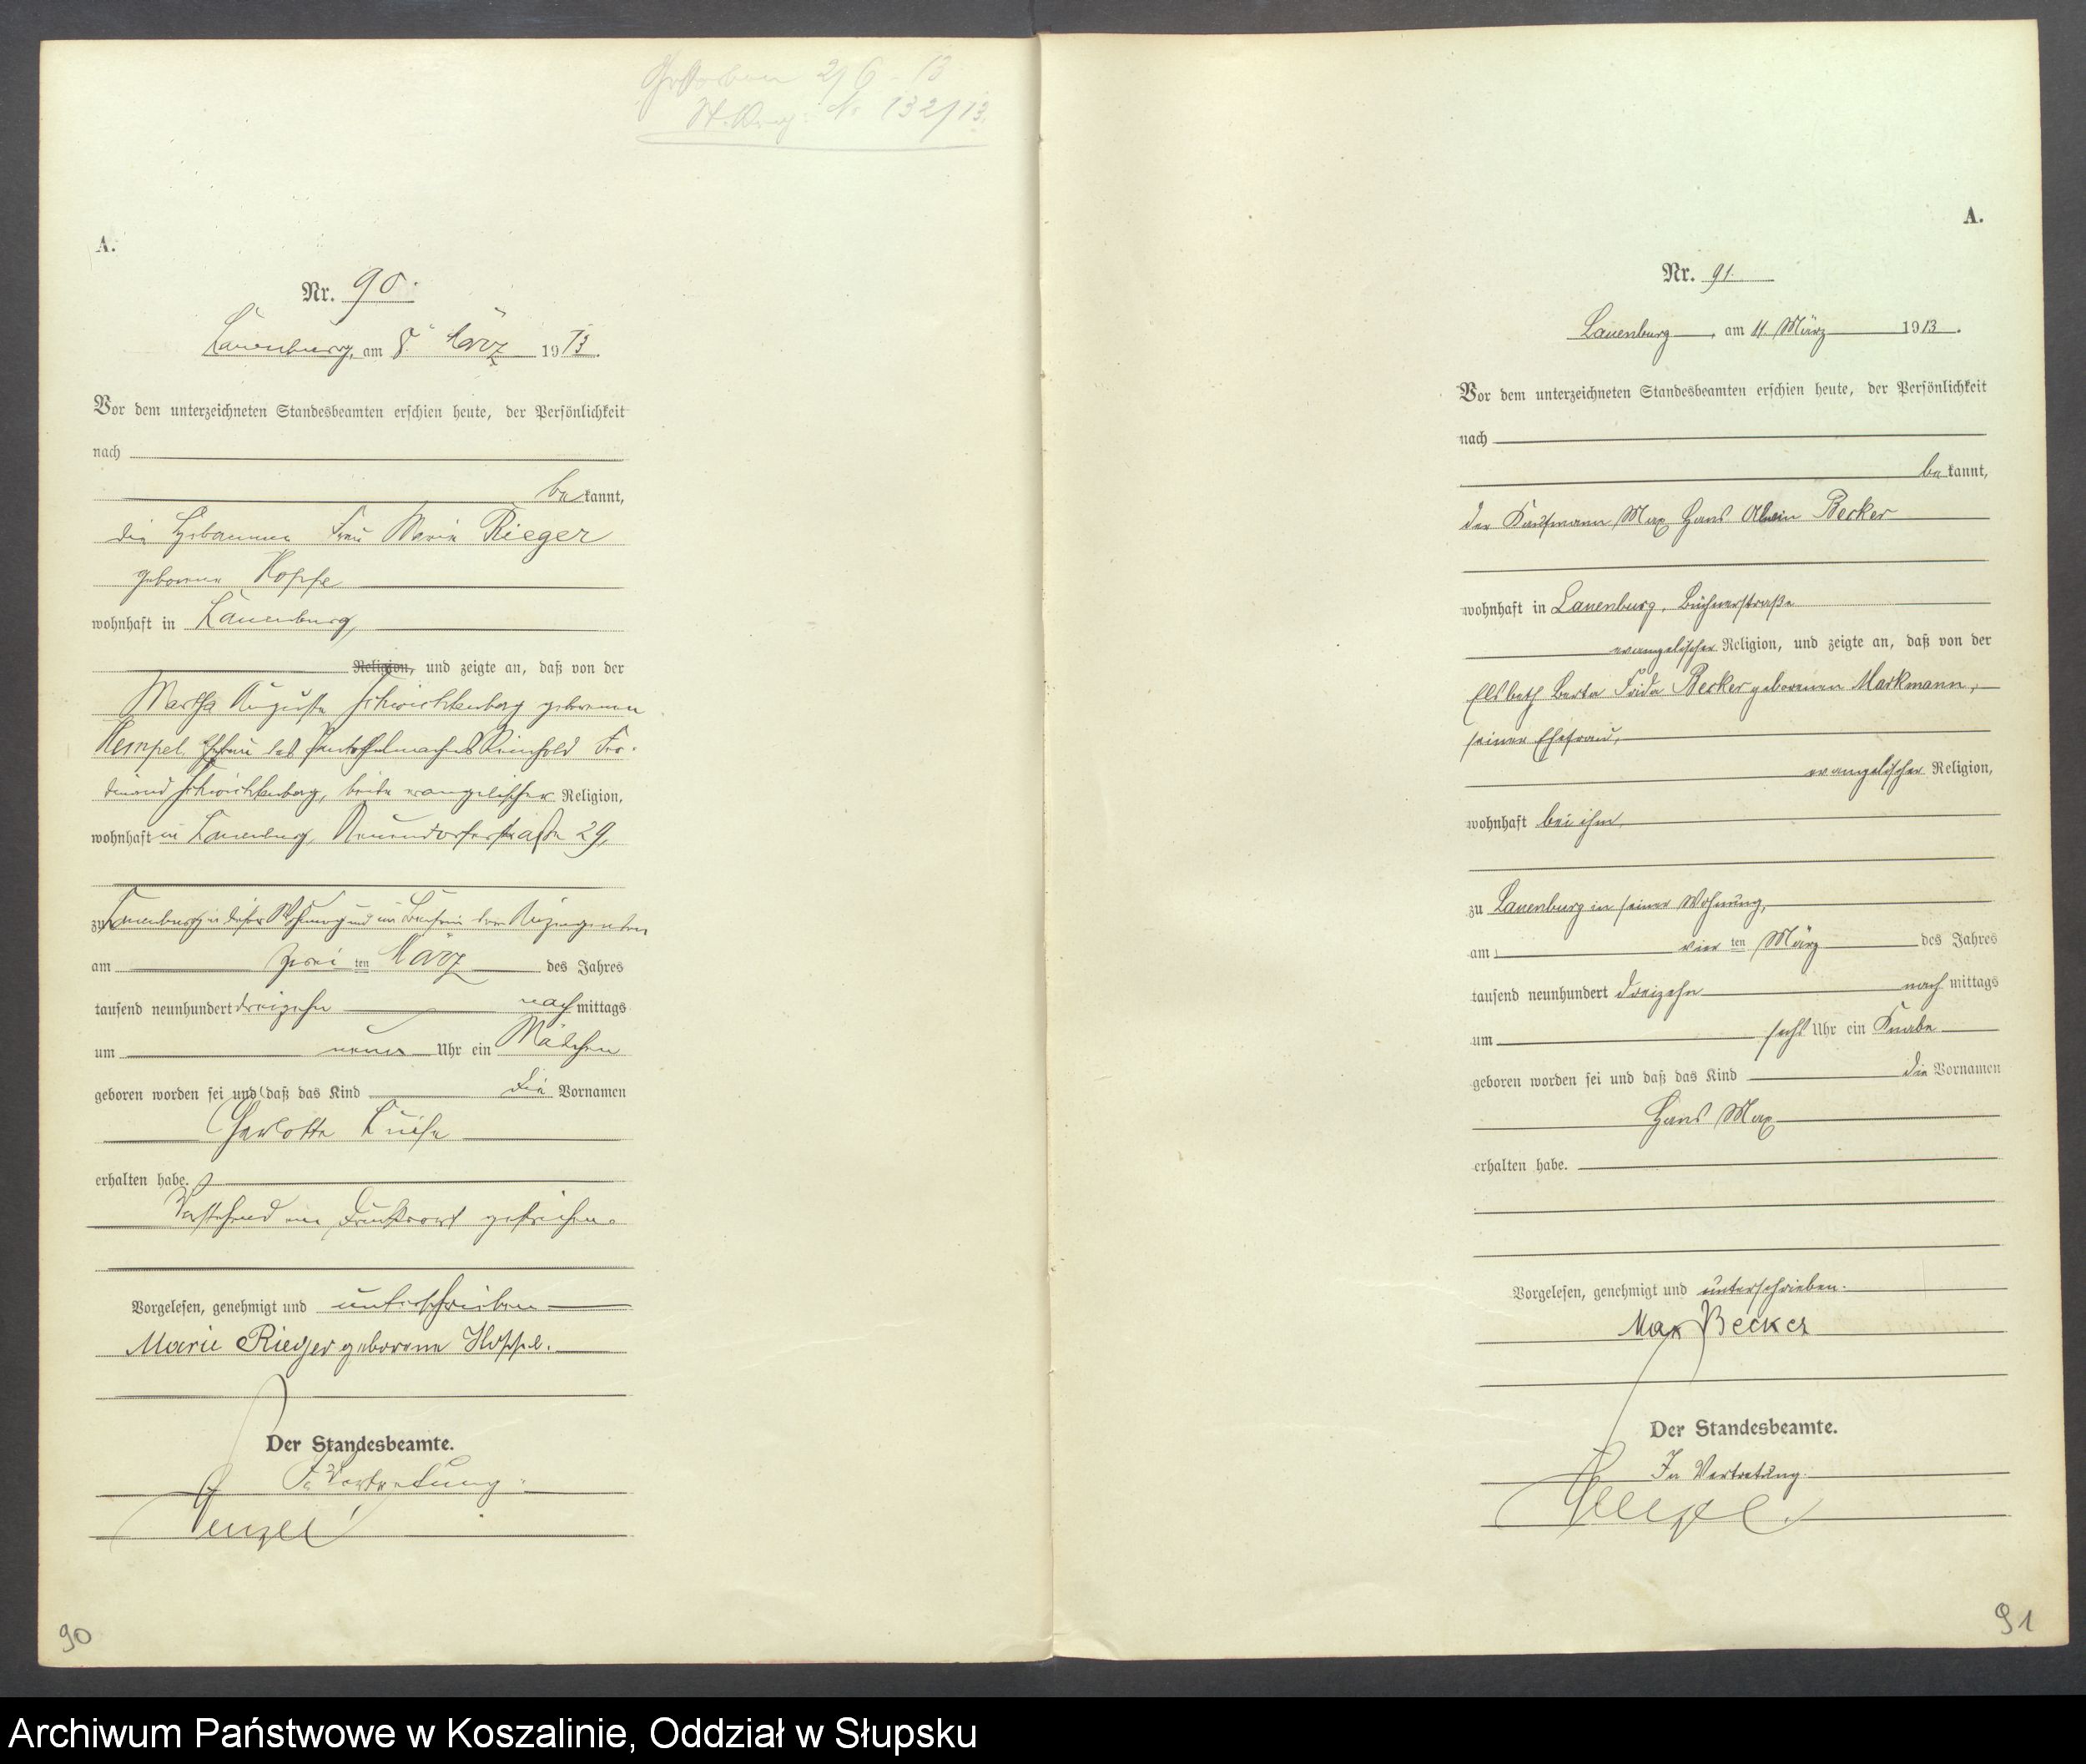 Gestorben 2/6 - 13
St. Reg: № 132/13.
A.
Nr. 90.
Lauenburg, am 8. März 1913.
Vor dem unterzeichneten Standesbeamten erschien heute, der Persönlichkeit
nach
bekannt,
die Hebamme Frau Marie Rieger
geborene Hoppe
wohnhaft in Lauenburg,
Religion, und zeigte an, daß von der
Martha Auguste Schwichtenberg geborenen
Hempel, Ehefrau des Pantoffelmachers Reinhold Fer-
dinand Schwichtenberg, beide evangelischer Religion,
wohnhaft in Lauenburg, Neuendorferstraße 29,
zu Lauenburg in dieser Wohnung und im Beisein der Anzeigenden
am zwei ten März des Jahres
tausend neunhundert dreizehn nachmittags
um neun Uhr ein Mädchen
geboren worden sei und daß das Kind die Vornamen
Charlotte Luise
erhalten habe.
Vorstehend ein Druckwort gestrichen.
Vorgelesen, genehmigt und unterschrieben
Marie Rieger geborene Hoppe.
Der Standesbeamte.
In Vertretung:
90
A.
Nr. 91.
Lauenburg, am 11. März 1913.
Vor dem unterzeichneten Standesbeamten erschien heute, der Persönlichkeit
nach
bekannt,
der Kaufmann Max Hans Alwin Becker
wohnhaft in Lauenburg, Büchnerstraße
evangelischer Religion, und zeigte an, daß von der
Elsbeth Berta Frida Becker geborenen Markmann,
seiner Ehefrau,
evangelischer Religion,
wohnhaft bei ihm,
zu Lauenburg in seiner Wohnung,
am vier ten März des Jahres
tausend neunhundert dreizehn nachmittags
um sechs Uhr ein Knabe
geboren worden sei und daß das Kind die Vornamen
Hans Max
erhalten habe.
Vorgelesen, genehmigt und unterschrieben.
Max Becker
Der Standesbeamte.
In Vertretung:
91
Archiwum Państwowe w Koszalinie, Oddział w Słupsku